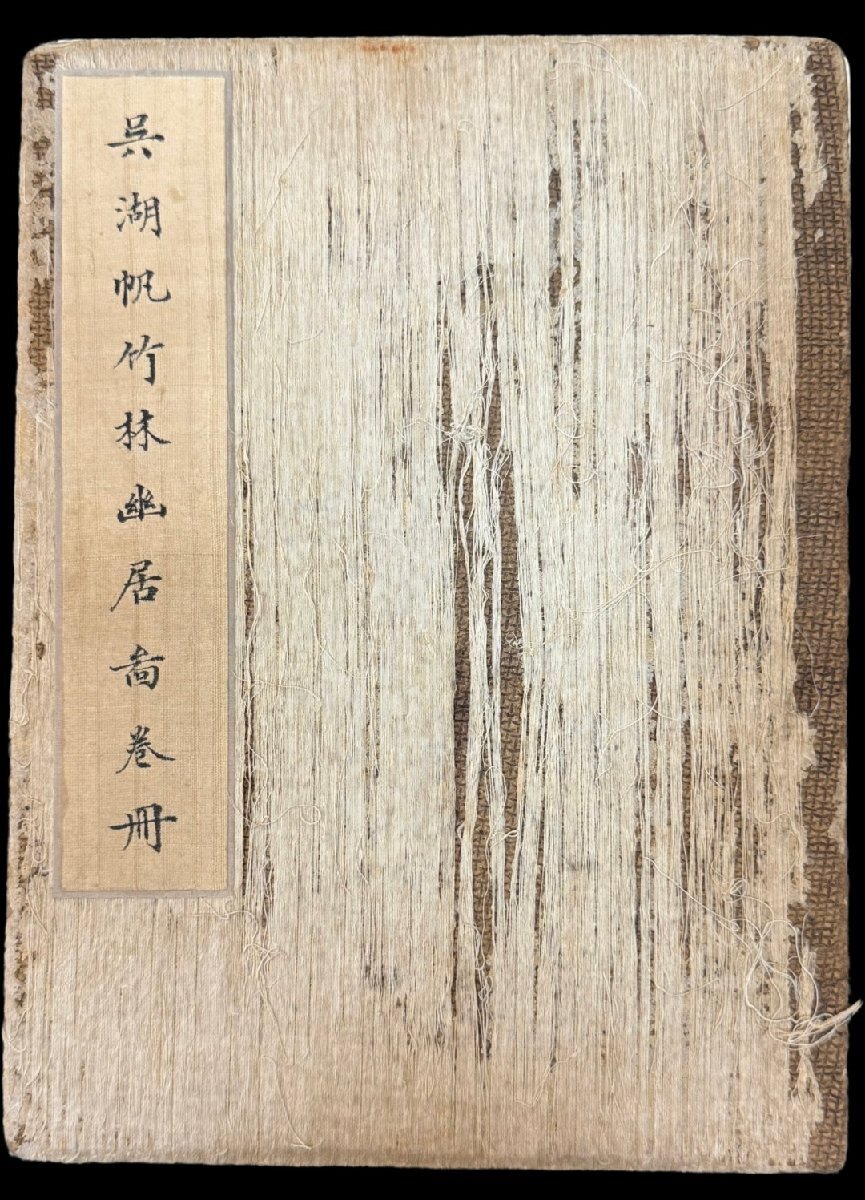 吳湖帆竹林幽居啚卷冊